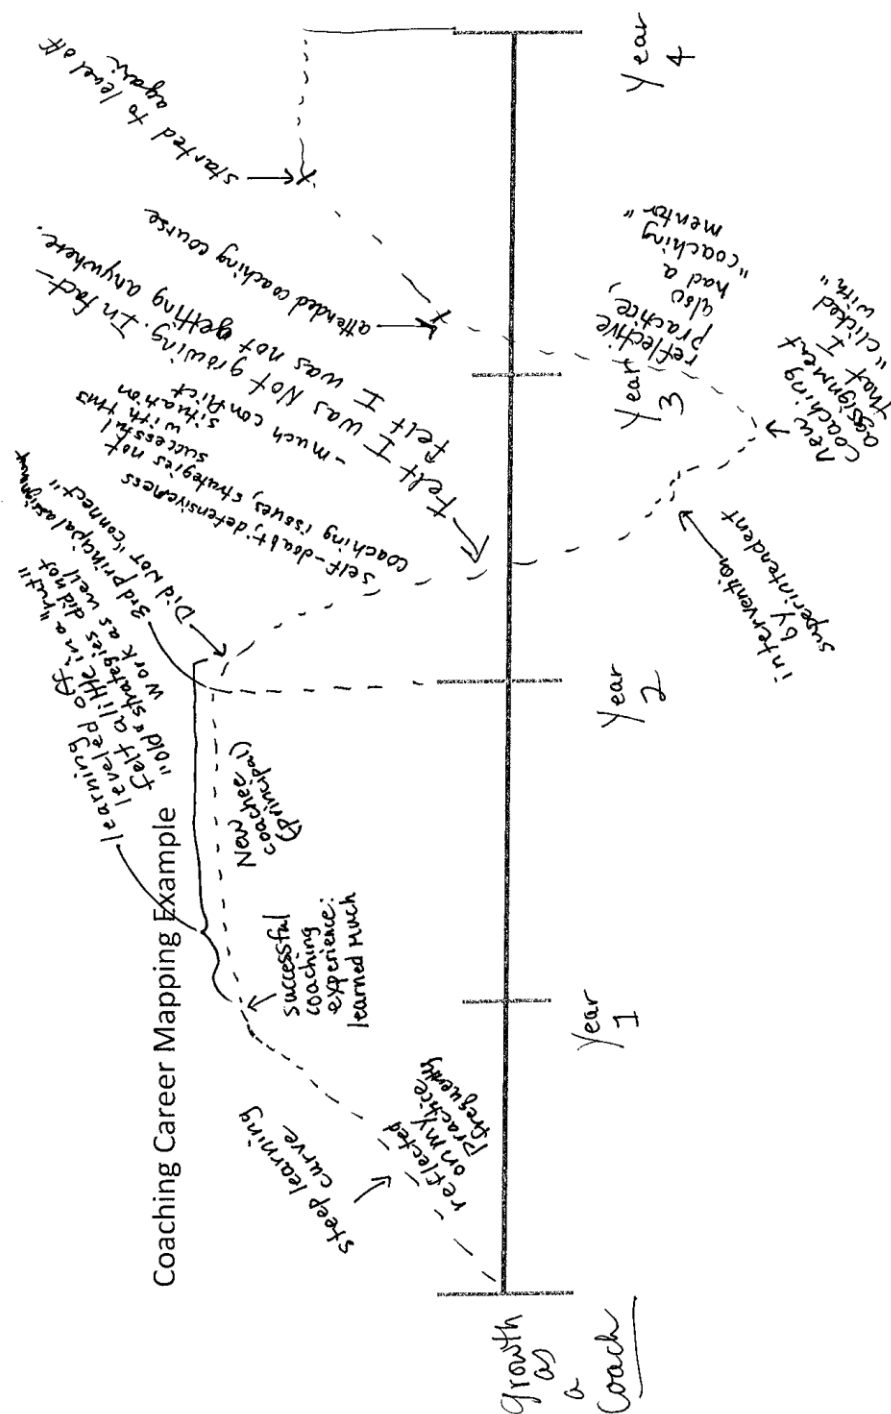 Coaching Career Mapping Example
Growth
as
a
Coach
steep learning
curve
reflected
on my
practice
frequently
Year
1
successful
coaching
experience:
learned much
learning
leveled off
felt a little in a "rut"
"old" strategies did not
work as well
New
coachee
(principal)
Year
2
3rd principal assignment
Did Not "connect"
self-doubt; defensiveness
coaching issues, strategies not
successful
with this
situation
- much conflict
Felt I was Not growing. In fact -
felt I was not getting anywhere.
intervention
by
superintendent
new
coaching
assignment
that I
"clicked
with"
Year
3
reflective
practice,
also
had a
"coaching
mentor"
attended coaching course
started to level off
again
Year
4